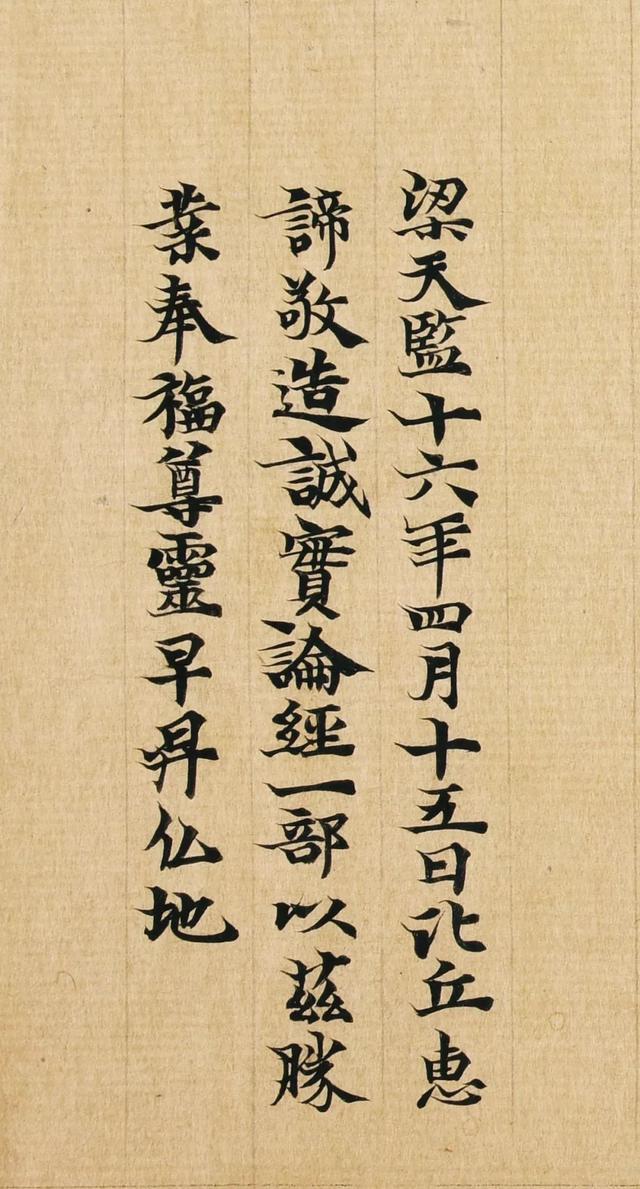 梁天監十六年四月十五日比丘恵
諦敬造誠實論經一部以茲勝
業奉福尊靈早昇仏地